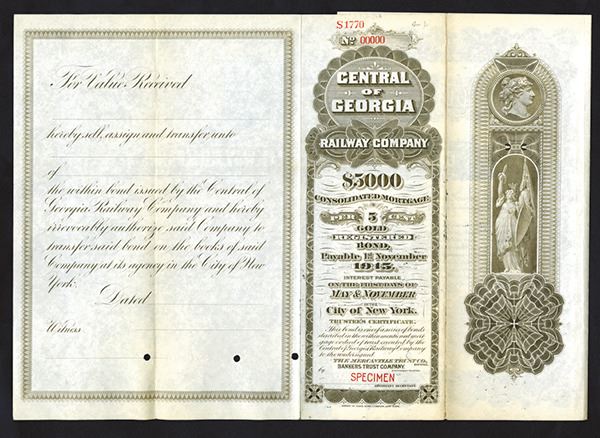 For Value Received
hereby sell, assign and transfer unto
of
the within bond issued by the Central of
Georgia Railway Company and hereby
irrevocably authorize said Company to
transfer said bond on the books of said
Company at its agency in the City of New
York.
Dated
Witness
S1770
No 00000
CENTRAL
OF
GEORGIA
RAILWAY COMPANY
$5000
CONSOLIDATED MORTGAGE
PER 5 CENT
GOLD
REGISTERED
BOND,
Payable 1st November
1945,
INTEREST PAYABLE
ON THE FIRST DAYS OF
MAY & NOVEMBER
IN THE
City of New York.
TRUSTEE'S CERTIFICATE.
This bond is one of a series of bonds
described in the within mentioned mort-
gage or deed of trust executed by the
Central of Georgia Railway Company
to the undersigned
THE MERCANTILE TRUST CO.
BANKERS TRUST COMPANY,
by
SPECIMEN